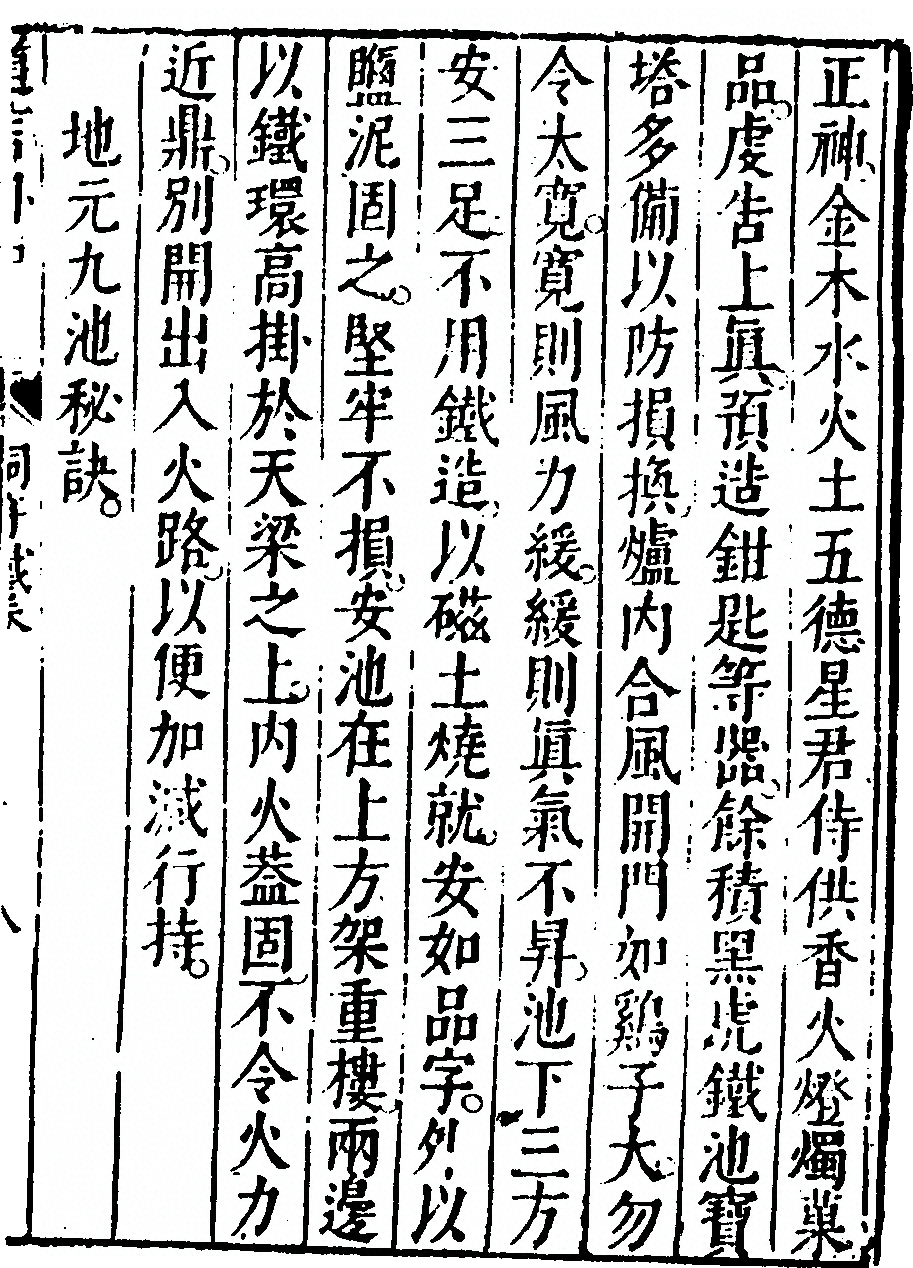 正神金木水火土五德星君侍供香火燈燭菓
品。虔告上眞預造鉗匙等器餘積黑虎鐵池寶
塔多備以防損換爐内合風開門如鷄子大勿
令太寛。寛則風力緩。緩則眞氣不昇池下三方
安三足不用鐵造以磁土燒就安如品字。外以
鹽泥固之。堅牢不損安池在上方架重樓兩邊
以鐵環高掛於天梁之上内火蓋固不令火力
近鼎別開出入火路以便加減行持。
地元九池秘訣。